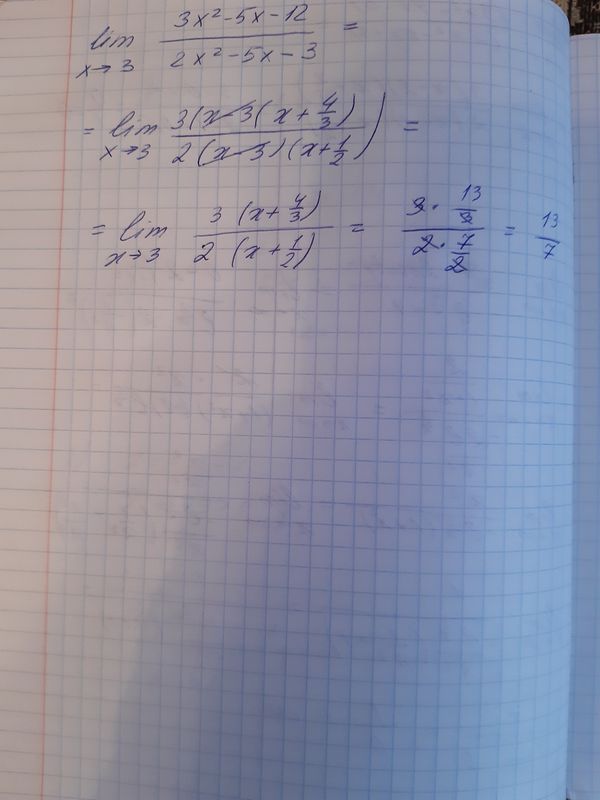 lim x→3 3x²-5x-12 / 2x²-5x-3 =
= lim x→3 3(x-3(x+4/3) / 2(x-3)(x+1/2)) =
= lim x→3 3 (x+4/3) / 2 (x+1/2) = 3·13/3 / 2·7/2 = 13/7